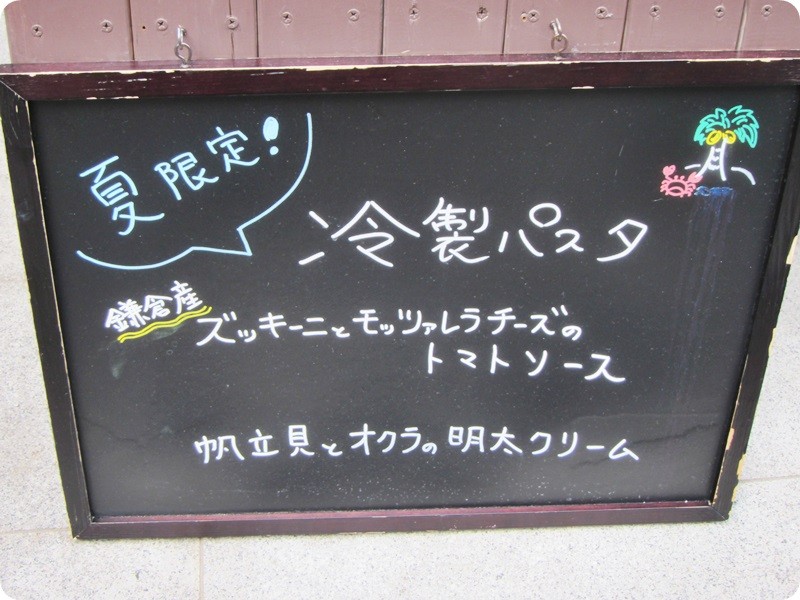 夏限定!
冷製パスタ
鎌倉産
ズッキーニとモッツァレラチーズの
トマトソース
帆立貝とオクラの明太クリーム